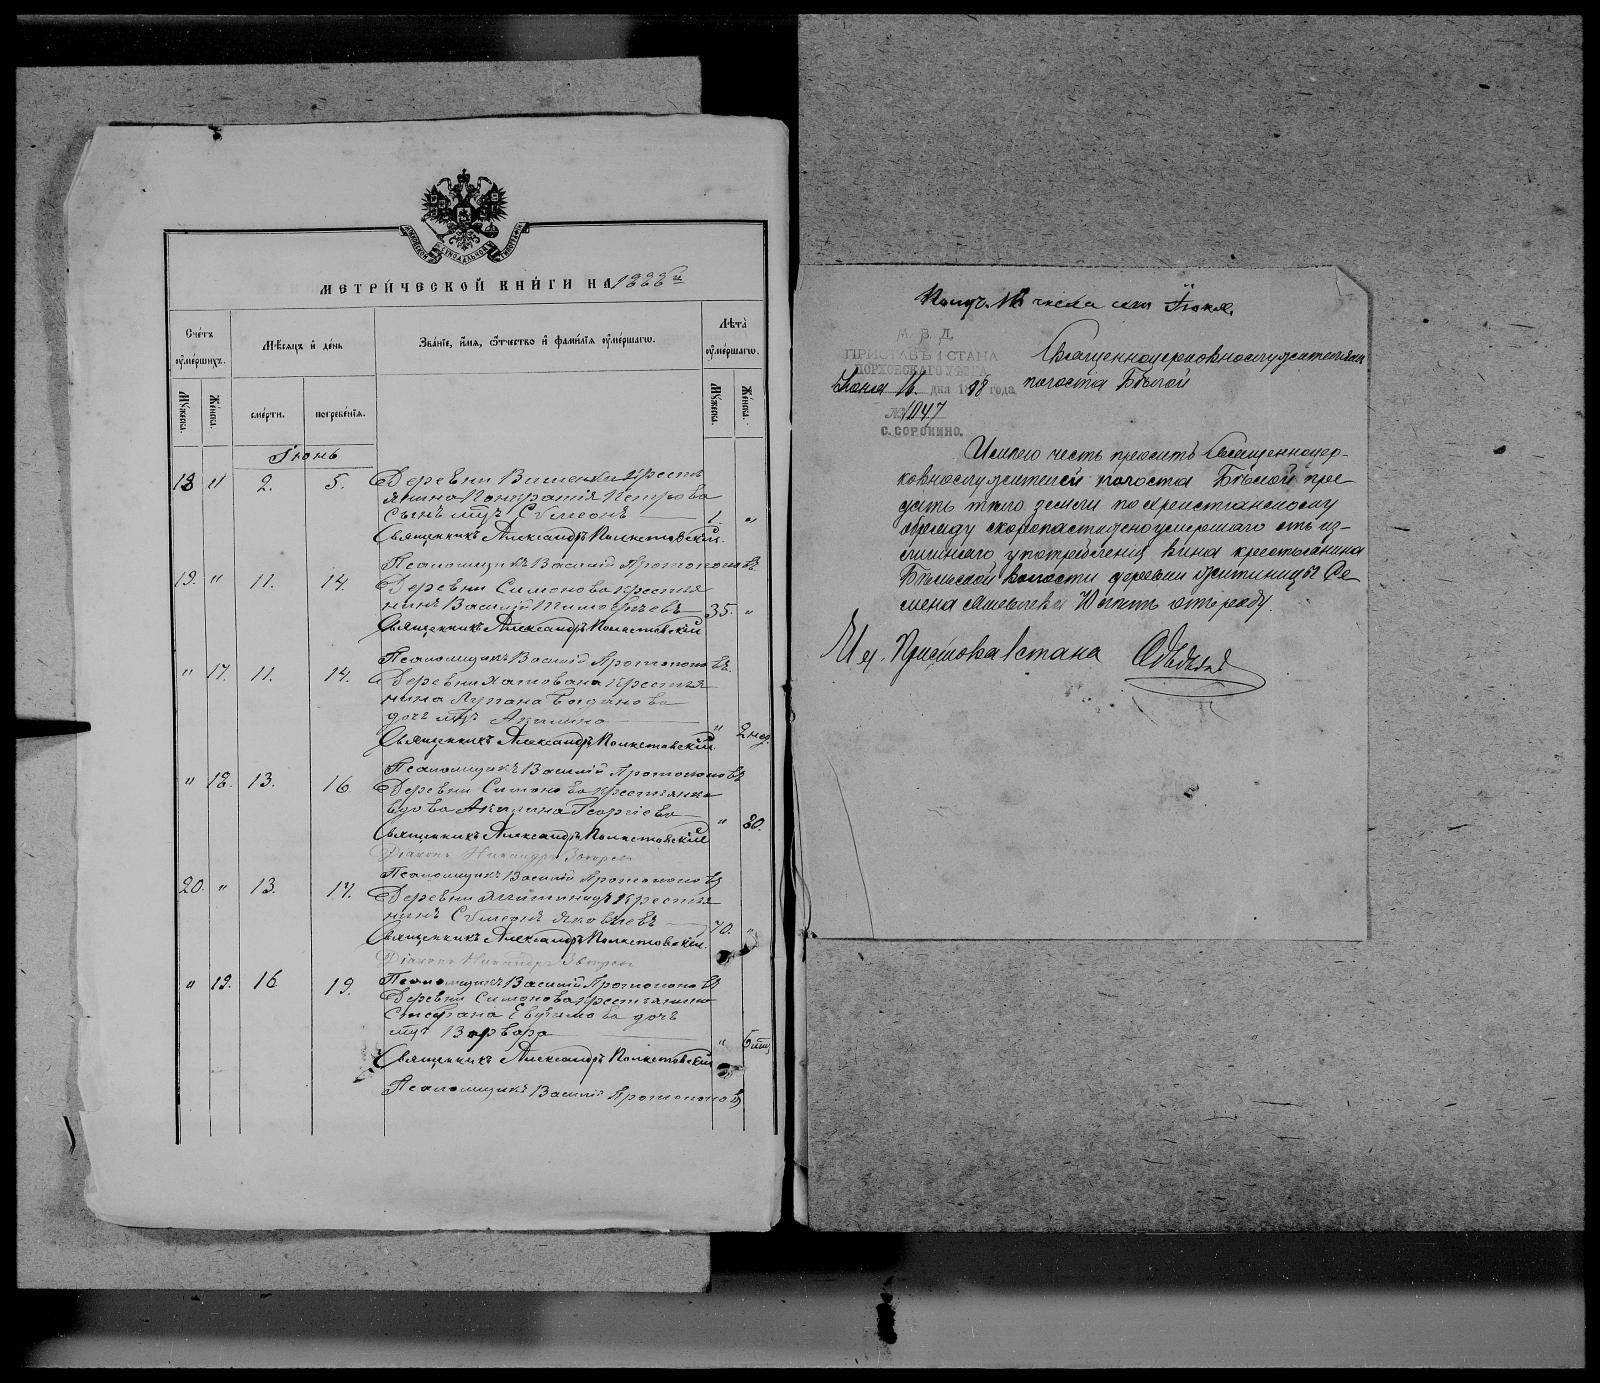 МЕТРИ́ЧЕСКОЙ КНИ́ГИ НА 1888й
Сче́тъ ᲂуме́ршихъ.
Мѣ́сяцъ и҆ де́нь
Зва́нїе, и҆́мя, ѻ҆́тчество и҆ фами́лїя ᲂуме́ршагѡ.
Лѣ́та ᲂуме́ршагѡ.
Му́жеска.
Же́нска.
сме́рти.
погребе́нїя.
Му́жеска.
Же́нска.
Іюнь
18 " 2. 5. Деревни крестьянина Кондратія Петрова
сынъ мл҃ Сѷмеонъ 1 "
Священникъ Александръ Полистовскій.
Псаломщикъ Василій Протопоповъ
19. " 11. 14. Деревни Симонова крестья
нинъ Василій Тимоѳеевъ 35. "
Священникъ Александръ Полистовскій
Псаломщикъ Василій Протопоповъ.
" 17. 11. 14. Деревни крестья
нина Богданова
дочь мл҃ Акилина " 2 нед.
Священникъ Александръ Полистовскій.
Псаломщикъ Василій Протопоповъ
" 18. 13. 16 Деревни Симонова крестьянка
вдова Акилина Георгіева " 80.
Священникъ Александръ Полистовскій
Діаконъ Никандръ
Псаломщикъ Василій Протопоповъ
20. " 13. 17. Деревни Житницъ крестья
нинъ Сѷмеонъ Яковлевъ 70. "
Священникъ Александръ Полистовскій.
Діаконъ Никандръ
Псаломщикъ Василій Протопоповъ
" 19. 16. 19. Деревни Симонова крестьянина
Стефана Евѳимова дочь
мл҃ Варвара " 6 мѣс.
Священникъ Александръ Полистовскій
Псаломщикъ Василій Протопоповъ
Получ. числа сего Іюня.
М. В. Д.
ПРИСТАВЪ 1 СТАНА
ПОРХОВСКАГО УѢЗДА
Іюня 16 дня 1888 года
№ 1047
С. СОРОКИНО.
Священноцерковнослужителямъ
погоста Бѣлой
Имѣю честь просить Священноцер-
ковнослужителей погоста Бѣлой пре-
дать тѣло землѣ по христіанскому
обряду скоропостижно умершаго отъ из-
лишняго употребленія вина крестьянина
Бѣльской волости деревни Житницы Се-
мена Яковлева 70 лѣтъ отъ роду.
И. д. Пристава 1 стана